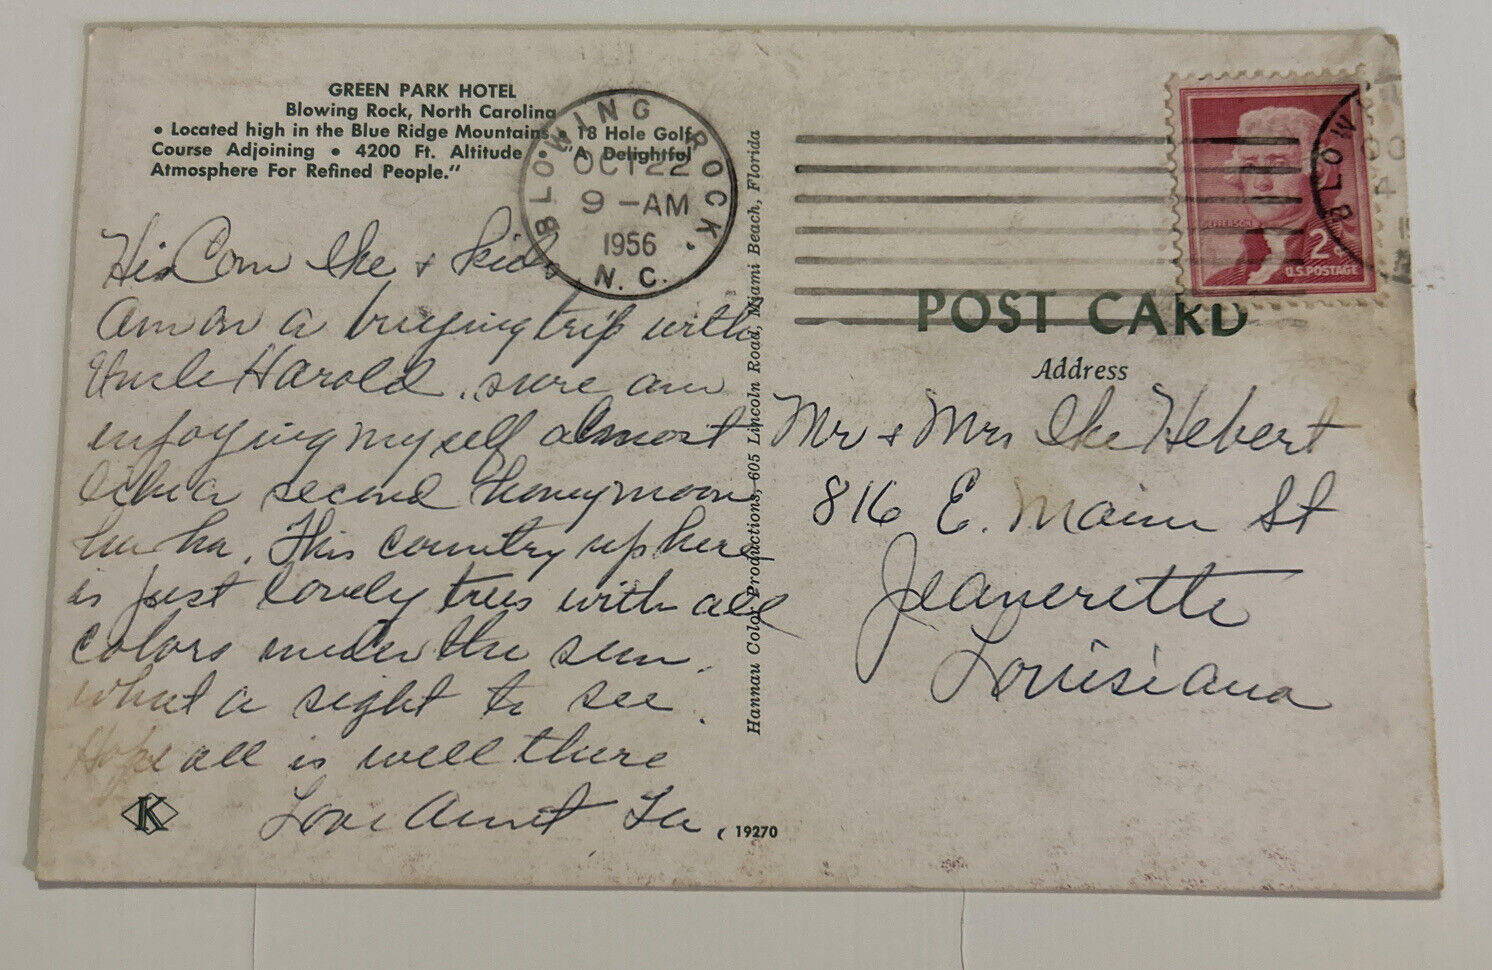 GREEN PARK HOTEL
Blowing Rock, North Carolina
• Located high in the Blue Ridge Mountains • 18 Hole Golf
Course Adjoining • 4200 Ft. Altitude • "A Delightful
Atmosphere For Refined People."
BLOWING ROCK.
OCT 22
9 -AM
1956
N. C.
Hi Com Ike & kids
Am on a buying trip with
Uncle Harold. sure am
enjoying myself almost
like a second honeymoon
ha ha. This country up here
is just lovely trees with all
colors under the sun.
what a sight to see.
Hope all is well there
Love Aunt
K
19270
Hannau Color Productions, 605 Lincoln Road, Miami Beach, Florida
JEFFERSON
2¢
U.S. POSTAGE
BLOW
POST CARD
Address
Mr & Mrs Ike Hebert
816 E. Main St
Jeanerette
Louisiana